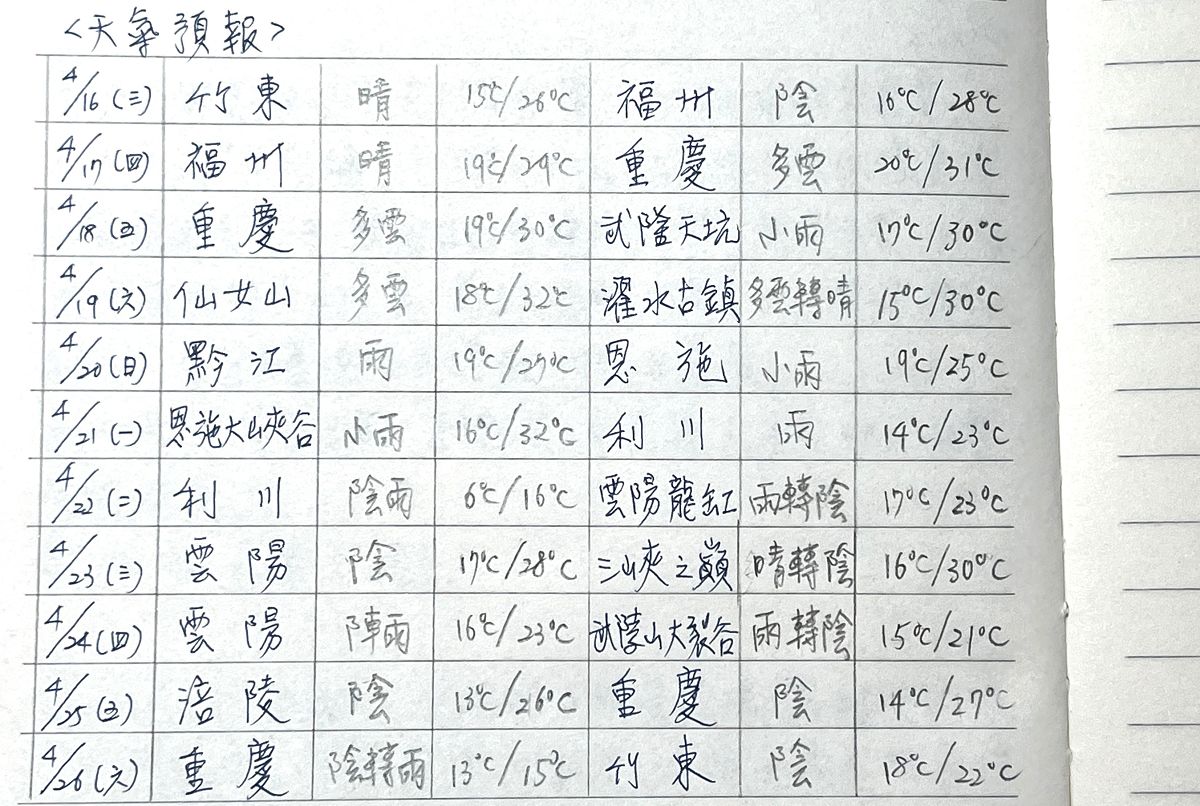 <天氣預報>
4/16(三) 竹東 晴 15℃/26℃ 福州 陰 16℃/28℃
4/17(四) 福州 晴 19℃/29℃ 重慶 多雲 20℃/31℃
4/18(五) 重慶 多雲 19℃/30℃ 武隆天坑 小雨 17℃/30℃
4/19(六) 仙女山 多雲 18℃/32℃ 濯水古鎮 多雲轉晴 15℃/30℃
4/20(日) 黔江 雨 19℃/27℃ 恩施 小雨 19℃/25℃
4/21(一) 恩施大峽谷 小雨 16℃/32℃ 利川 雨 14℃/23℃
4/22(二) 利川 陰雨 6℃/16℃ 雲陽龍缸 雨轉陰 17℃/23℃
4/23(三) 雲陽 陰 17℃/28℃ 三峽之巔 晴轉陰 16℃/30℃
4/24(四) 雲陽 陣雨 16℃/23℃ 武陵山大裂谷 雨轉陰 15℃/21℃
4/25(五) 涪陵 陰 13℃/26℃ 重慶 陰 14℃/27℃
4/26(六) 重慶 陰轉雨 13℃/15℃ 竹東 陰 18℃/22℃